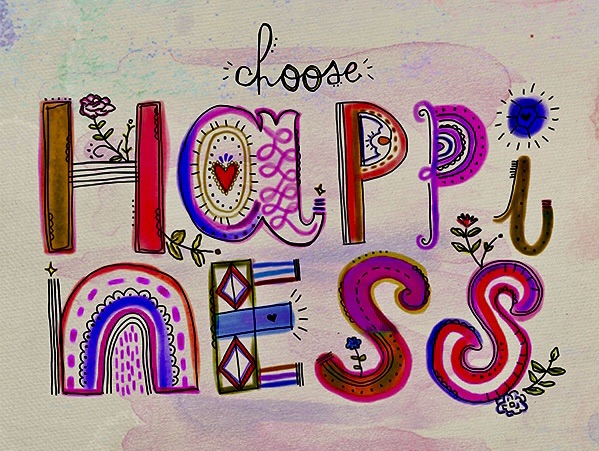 choose
HaPPi
nESS